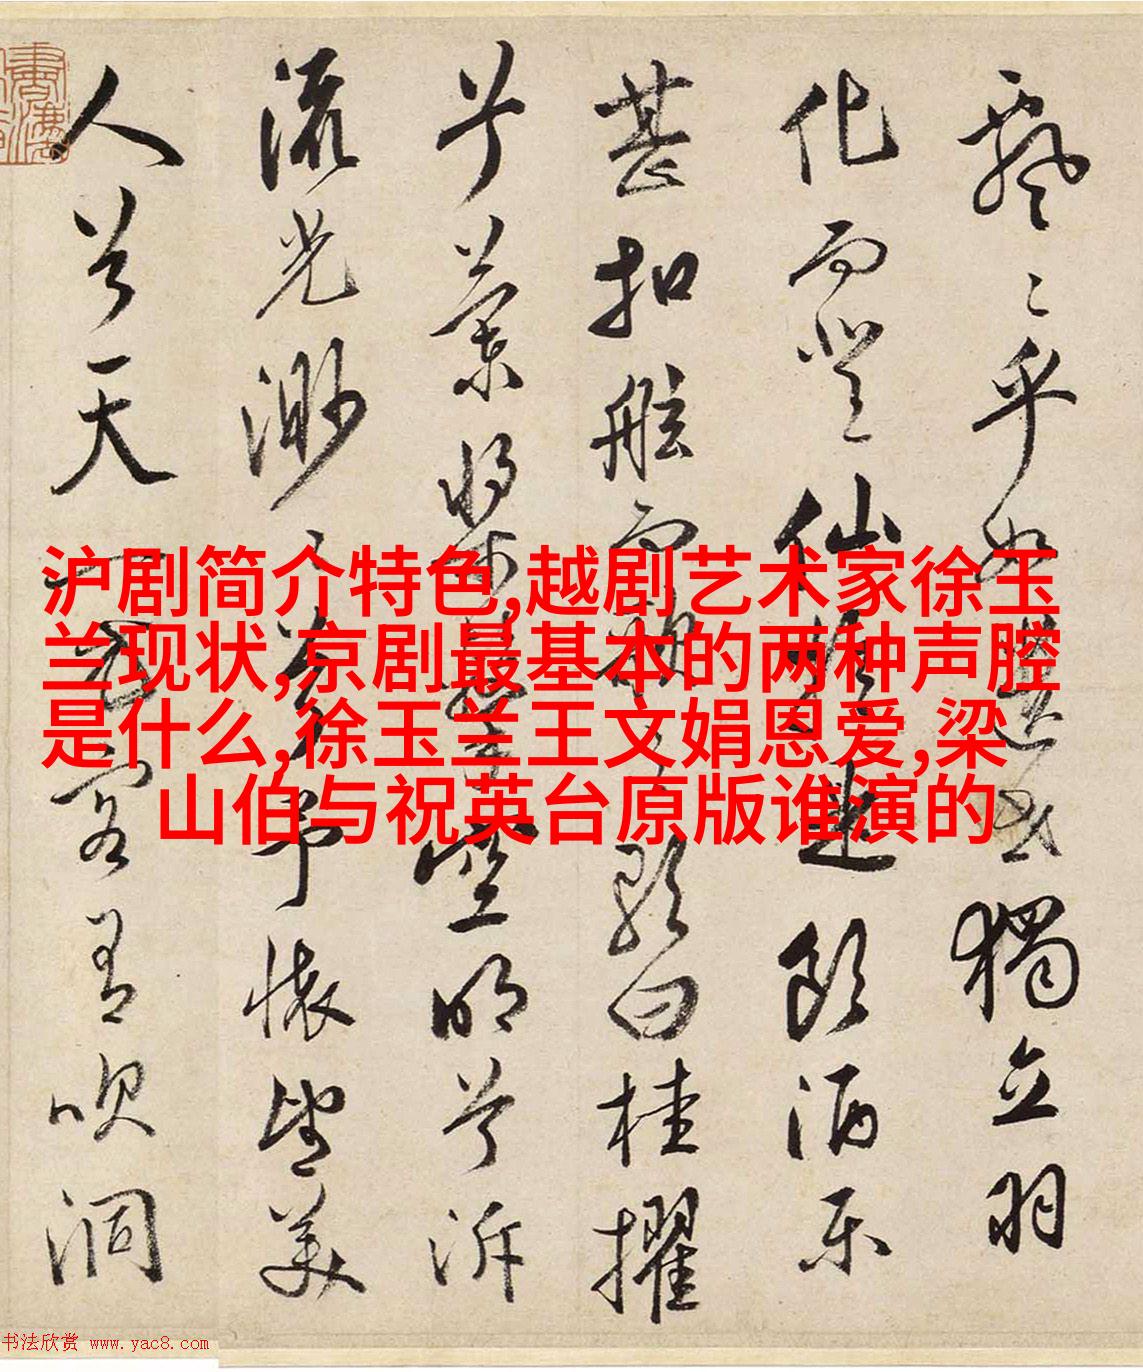 飄〻乎如遺世獨立羽
化而登仙於是飲酒樂
甚扣舷而歌之歌曰桂擢
兮蘭槳擊空明兮泝
流光渺〻兮予懷望美
人兮天一方客有吹洞
沪剧简介特色,越剧艺术家徐玉
兰现状,京剧最基本的两种声腔
是什么,徐玉兰王文娟恩爱,梁
山伯与祝英台原版谁演的
书法欣赏 www.yac8.com